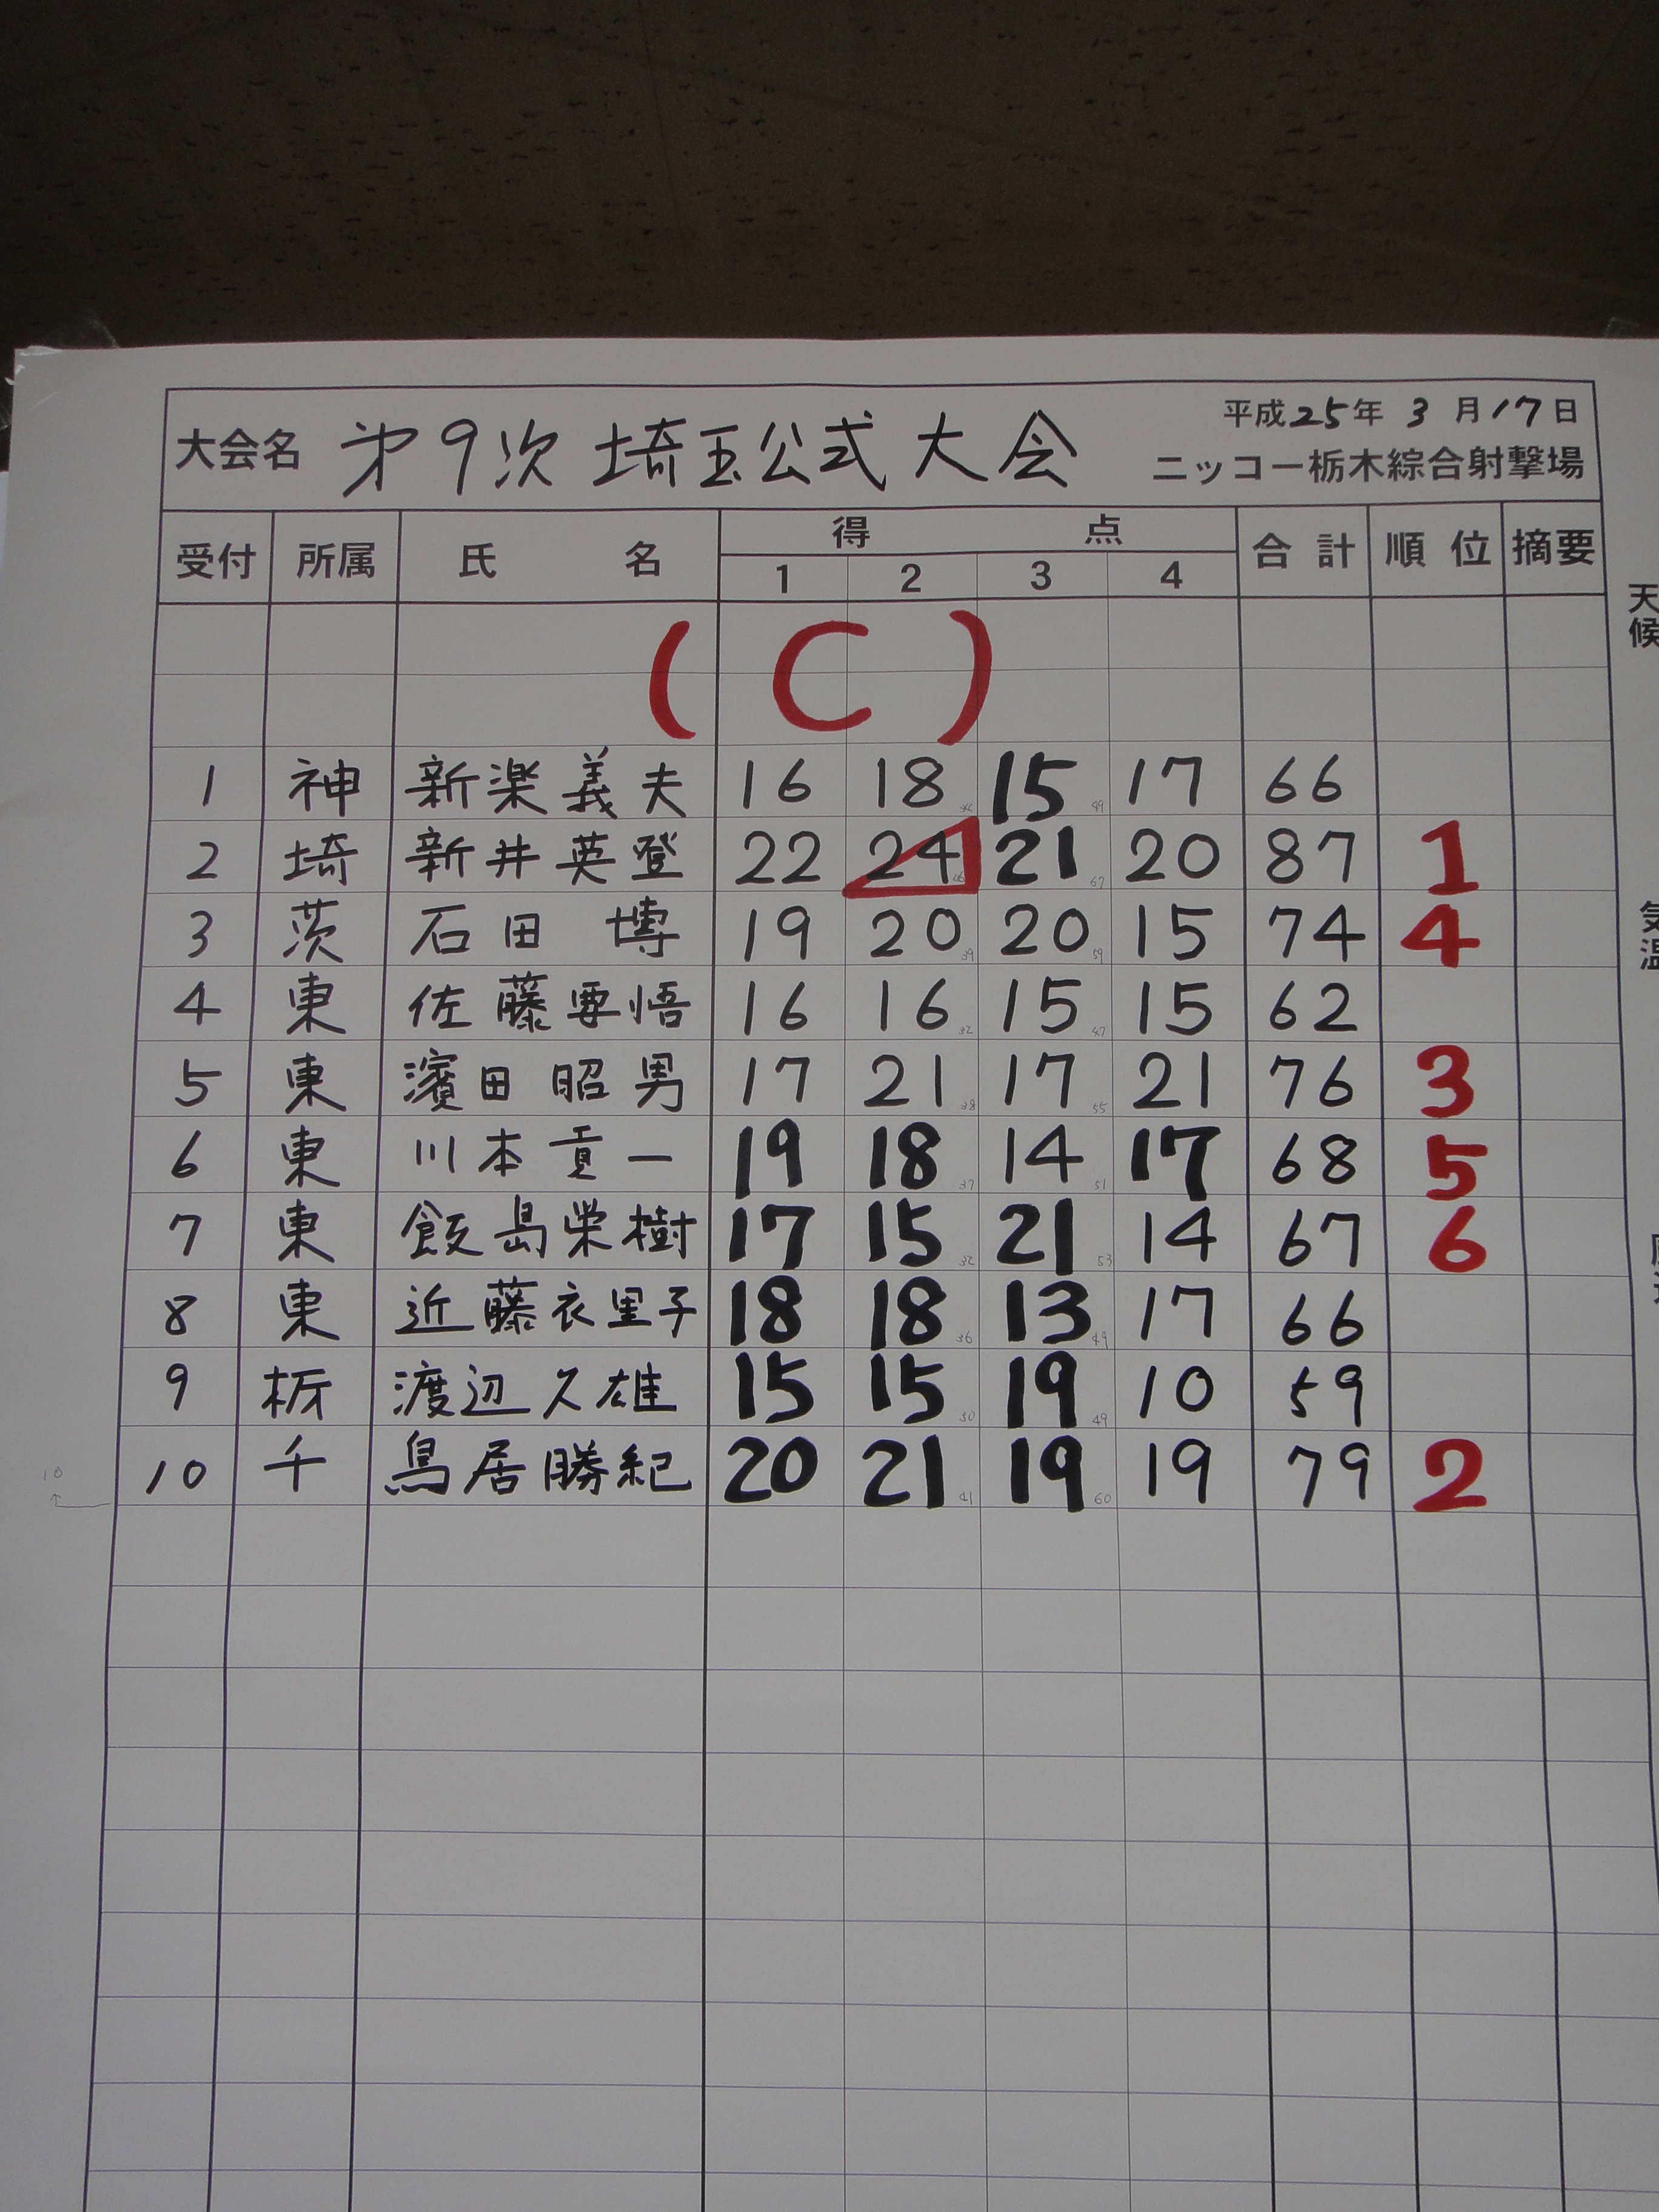 平成25年 3月17日
大会名 第9次 埼玉公式大会
ニッコー栃木綜合射撃場
受付 所属 氏名 得点 合計 順位 摘要
1 2 3 4
(C)
1 神 新楽義夫 16 18 15 17 66
2 埼 新井英登 22 24 21 20 87 1
3 茨 石田 博 19 20 20 15 74 4
4 東 佐藤要悟 16 16 15 15 62
5 東 濱田昭男 17 21 17 21 76 3
6 東 川本貢一 19 18 14 17 68 5
7 東 飯島栄樹 17 15 21 14 67 6
8 東 近藤衣里子 18 18 13 17 66
9 栃 渡辺久雄 15 15 19 10 59
10 千 鳥居勝紀 20 21 19 19 79 2
天候
気温